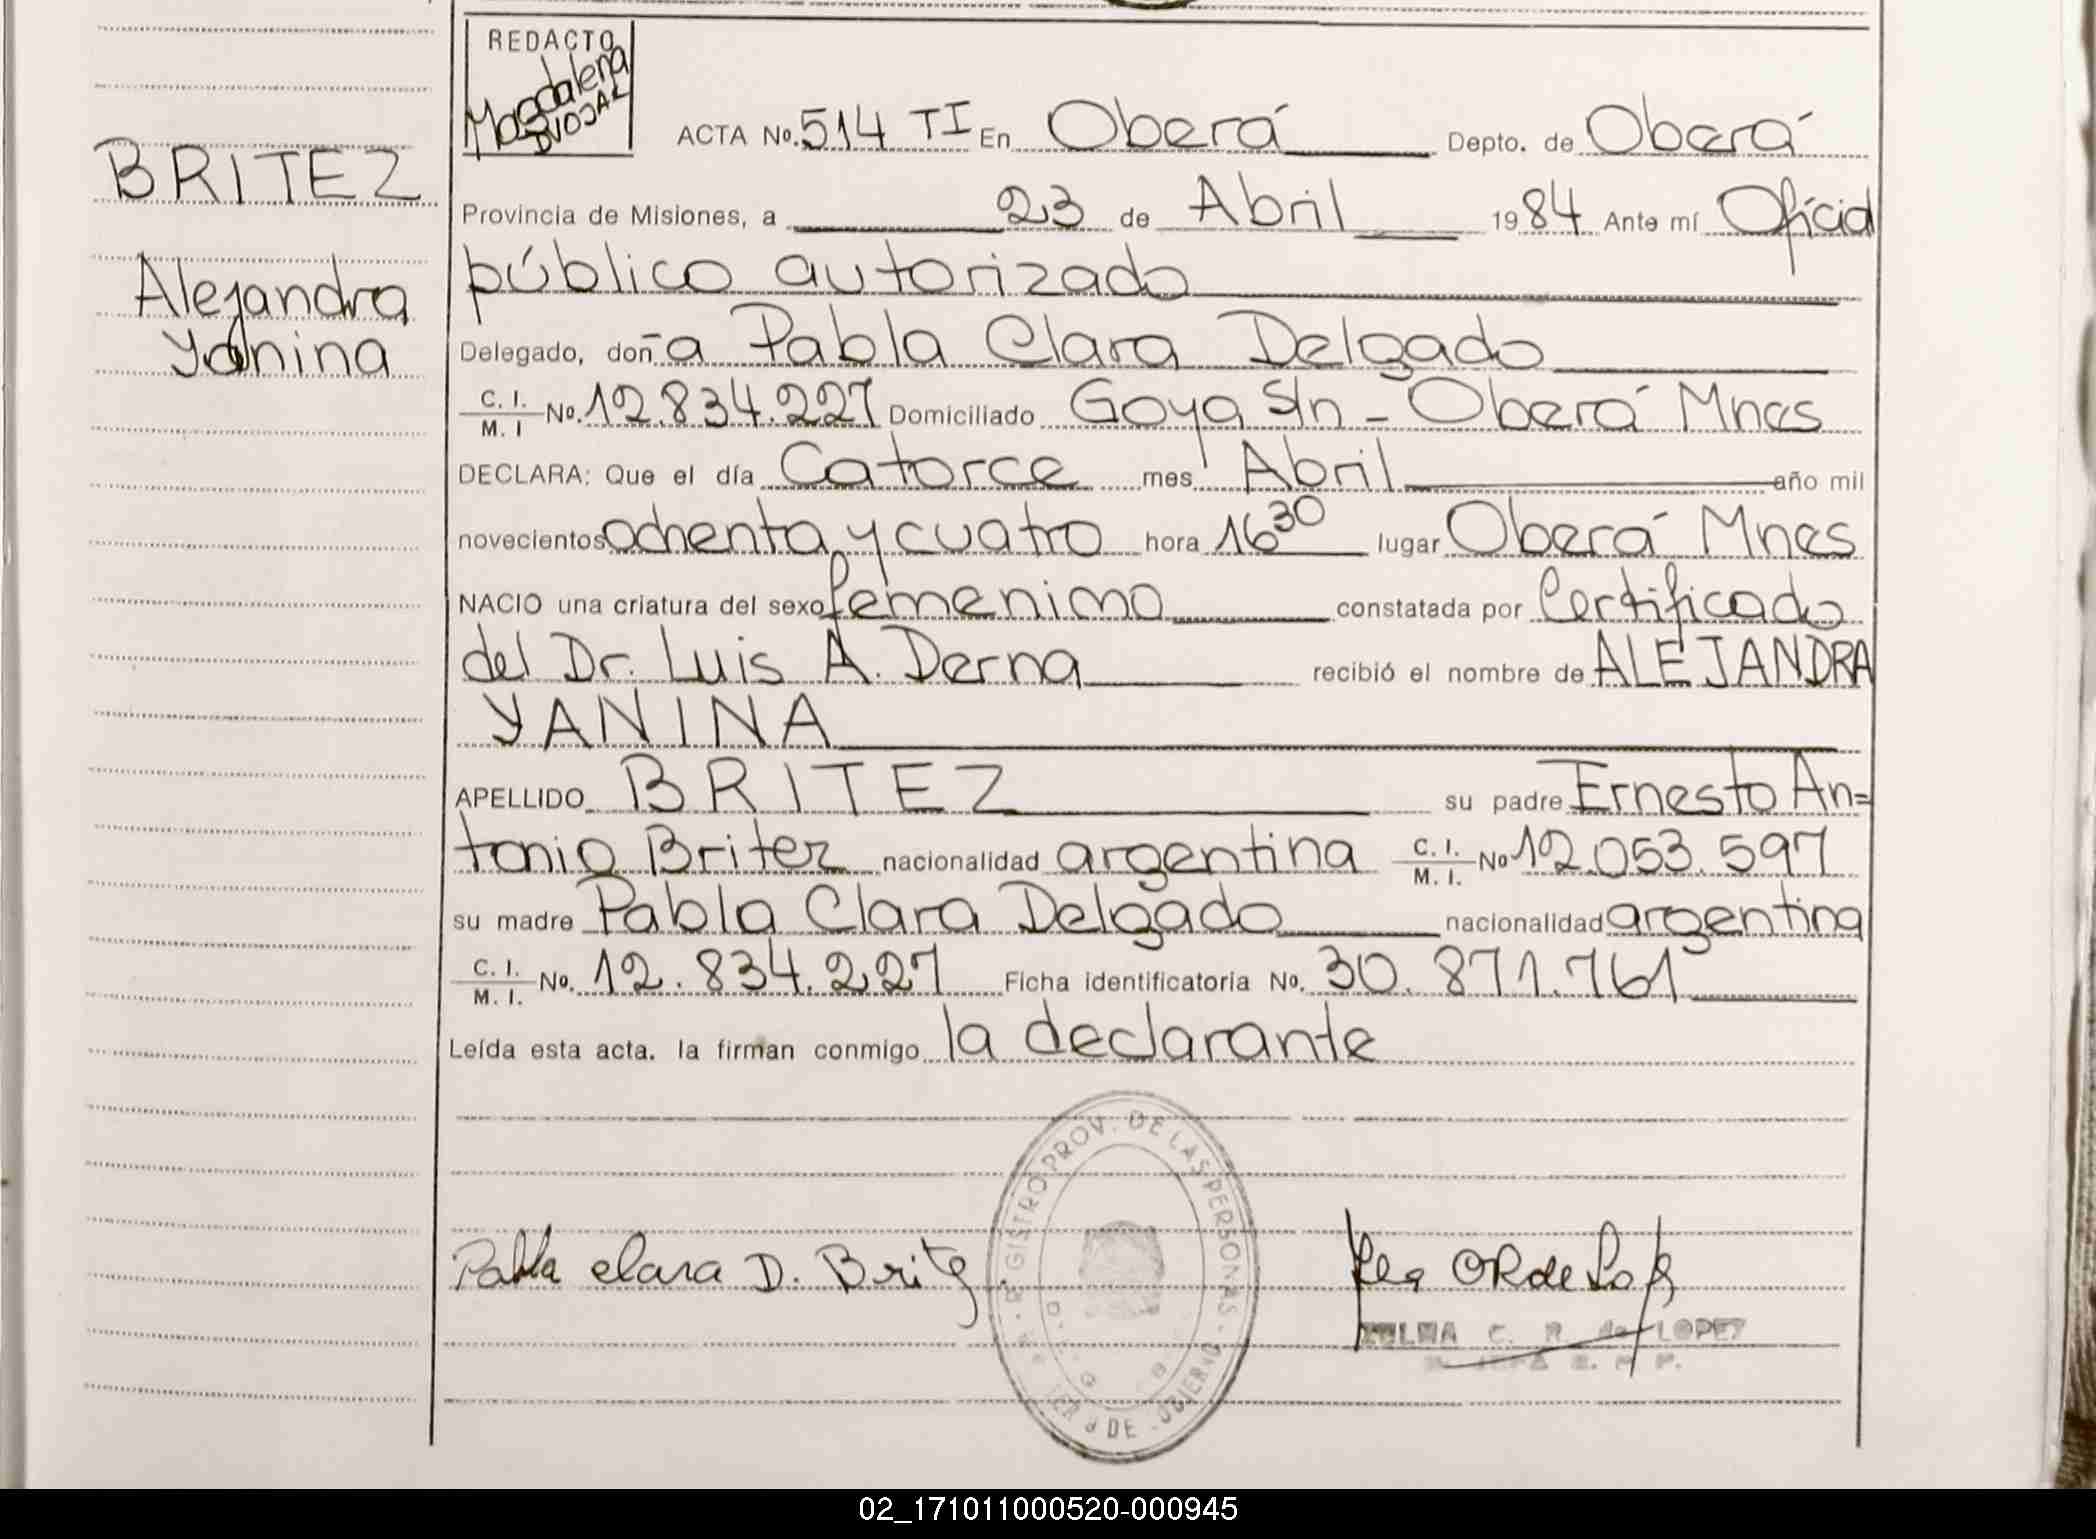 REDACTO
Magdalena
DVOJAL
ACTA No. 514 TI En Oberá Depto. de Oberá
BRITEZ
Provincia de Misiones, a 23 de Abril 1984 Ante mí Oficial
Alejandra
público autorizado
Yanina
Delegado, don-a Pabla Clara Delgado
C. I. / M. I No. 12.834.227 Domiciliado Goya S/n - Oberá Mnes
DECLARA: Que el día Catorce mes Abril año mil
novecientos ochenta y cuatro hora 16 30 lugar Oberá Mnes
NACIO una criatura del sexo femenino constatada por Certificado
del Dr. Luis A. Derna recibió el nombre de ALEJANDRA
YANINA
APELLIDO BRITEZ su padre Ernesto An=
tonio Britez nacionalidad argentina C. I. / M. I. No 12.053.597
su madre Pabla Clara Delgado nacionalidad argentina
C. I. / M. I. No. 12.834.227 Ficha identificatoria No. 30.871.761
Leída esta acta. la firman conmigo la declarante
REGISTRO PROV. DE LAS PERSONAS
Pabla Clara D. Britez
C. R. de LOPEZ
02_171011000520-000945